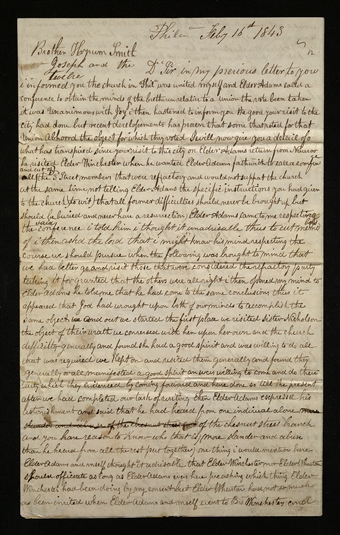 Phila Feby 16th 1843
Brother Hyrum Smith
Joseph and the Dr Sir in my previous letter to you
Twelve
i informed you the church in Phila was united myself and Elder Adams called a
conference to obtain the minds of the brethren relative to a union the vote been taken
it was unanimous with joy i then hastened to inform you the good your visit to the
city had done but recent developments has proven that some that voted for that
union abhored the object for which they voted I will now give you a detail of
what has transpired since your visit to this city on Elder Adams return from Nauvoo
he visited Elder Winchester when he wanted Elder Adams to call a
and cut off the members that were refractory and would not support the church
at the same time not telling Elder Adams the specific instructions you had given
to the church (to wit) that all former difficulties should never be brought up but
should be buried and never have a resurrection Elder Adams came to me respecting
the conference i told him i thought it unadvisable thus to cut members off
i then asked the lord that i might know his mind respecting the
course we should pursue when the following was brought to mind that
we had better go and visit those that were considered the refractory party
taking it for granted that the others were all right i then opened my mind to
Elder Adams he told me that he had come to the same conclusions thus it
appeared that God had wrought upon both of our minds to accomplish the
same object we went out we started the first place we visited Sister Nicholson
the object of their wrath we conversed with her upon her own and the church
difficulty generally and found she had a good spirit and was willing to do all
that was required we kept on and visited them generally and found they
generally or all manifested a good spirit an even willing to come and do their
duty which they evidenced by coming forward and have done so till the present
after we had completed our task of visiting them Elder Adams expressed his
astonishment and said that he had heard from one individual alone
of the chesnut street branch
and you have reason to know who that is, more slander and abuse
than he heard from all the rest put together, one thing i would mention here
Elder Adams and myself thought it advisable that Elder Winchester nor Elder
should officiate as long as Elder Adams was here preaching which thing Elder
Winchester had been doing by my consent but Elder has not so much
as been invited when Elder Adams and myself went to Bro Winchester and